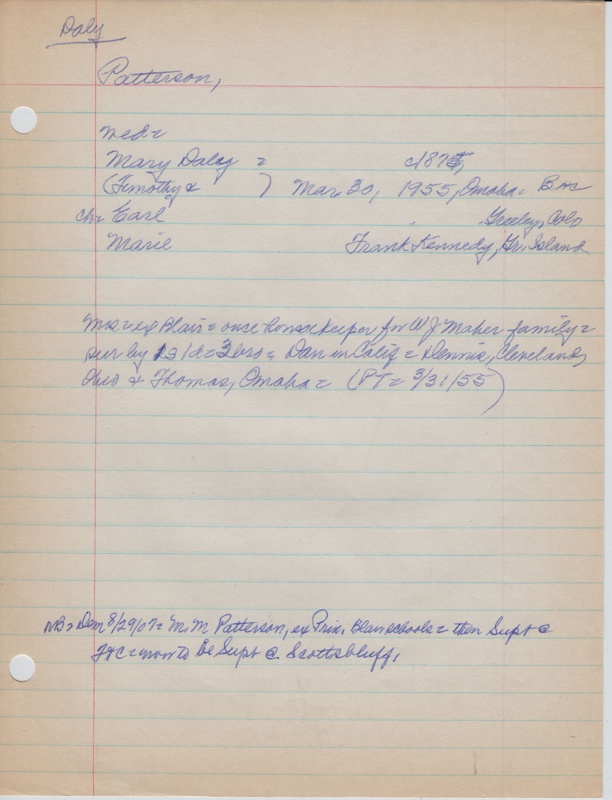 Daly
Patterson,
wed=
Mary Daly = c1875,
(Timothy & ) Mar. 30, 1955, Omaha = B
ch= Earl Greeley, Colo
Marie Frank Kennedy, Gr. Island
Mrs = ex Blair = once housekeeper for W J Maher family =
sur by 1s 1d = 3 bro = Dan in Calif = Dennis, Cleveland,
Ohio & Thomas, Omaha = (PT = 3/31/55)
NB = Dem 8/29/07 = M. M Patterson, ex Prin. Blair schools = then Supt @
= now to be Supt @ Scottsbluff.